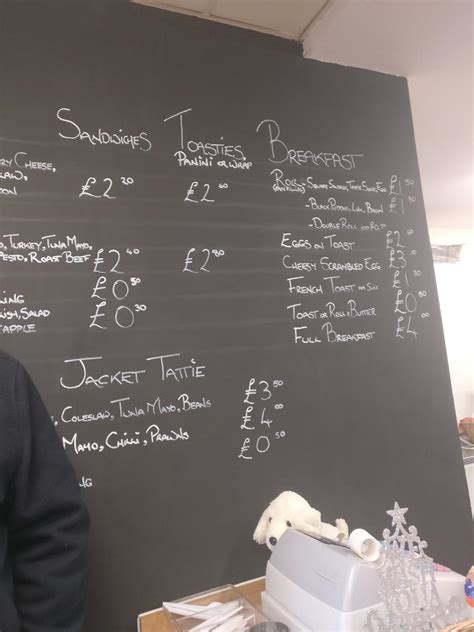 Sandwiches Toasties, Breakfast
Panini or Wrap
Cheese,
£2 20 £2 60
Rolls
- Square Sausage, Tattie Scone, Egg £1
- Black Pudding, Link, Bacon £1
- Double Roll
Turkey, Tuna Mayo,
Pesto, Roast Beef £2 40 £2 80
Eggs on Toast £2
Cheesy Scrambled Egg £3
French Toast £1
£0 50
Salad £0 30
Toast or Roll & Butter £0
Full Breakfast £4
Jacket Tattie
Coleslaw, Tuna Mayo, Beans £3 50
Mayo, Chilli, Prawns £4 00
£0 50